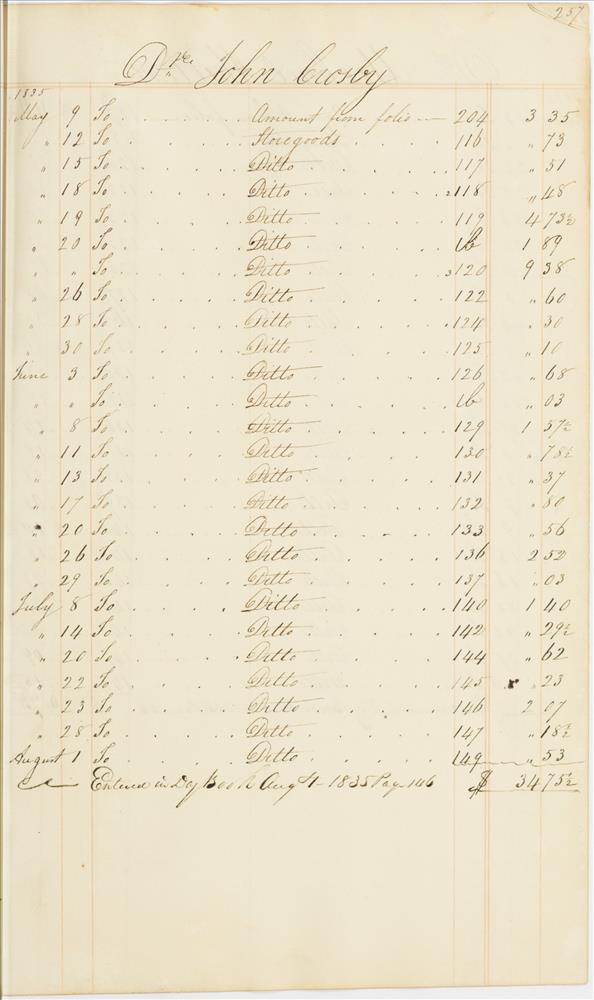 257
Dr. John Crosby
1835
May 9 To . . . . . . Amount from folio — 204 3 35
" 12 To . . . . . . Storegoods . . . . 116 " 73
" 15 To . . . . . . Ditto . . . . . . 117 " 51
" 18 To . . . . . . Ditto . . . . . . 118 " 48
" 19 To . . . . . . Ditto . . . . . . 119 4 73½
" 20 To . . . . . . Ditto . . . . . . ib 1 89
" " To . . . . . . Ditto . . . . . . 120 9 38
" 26 To . . . . . . Ditto . . . . . . 122 " 60
" 28 To . . . . . . Ditto . . . . . . 124 " 30
" 30 To . . . . . . Ditto . . . . . . 125 " 10
June 3 To . . . . . . Ditto . . . . . . 126 " 68
" " To . . . . . . Ditto . . . . . . ib " 03
" 8 To . . . . . . Ditto . . . . . . 129 1 37½
" 11 To . . . . . . Ditto . . . . . . 130 " 78½
" 13 To . . . . . . Ditto . . . . . . 131 " 37
" 17 To . . . . . . Ditto . . . . . . 132 " 80
" 20 To . . . . . . Ditto . . . . . . 133 " 56
" 26 To . . . . . . Ditto . . . . . . 136 2 52
" 29 To . . . . . . Ditto . . . . . . 137 " 03
July 8 To . . . . . . Ditto . . . . . . 140 1 40
" 14 To . . . . . . Ditto . . . . . . 142 " 29½
" 20 To . . . . . . Ditto . . . . . . 144 " 62
" 22 To . . . . . . Ditto . . . . . . 145 " 23
" 23 To . . . . . . Ditto . . . . . . 146 2 07
" 28 To . . . . . . Ditto . . . . . . 147 " 18½
August 1 To . . . . . . Ditto . . . . . . 149 " 53
Entered in Day Book Aug 1 - 1835 Pay 146 $ 34 75½